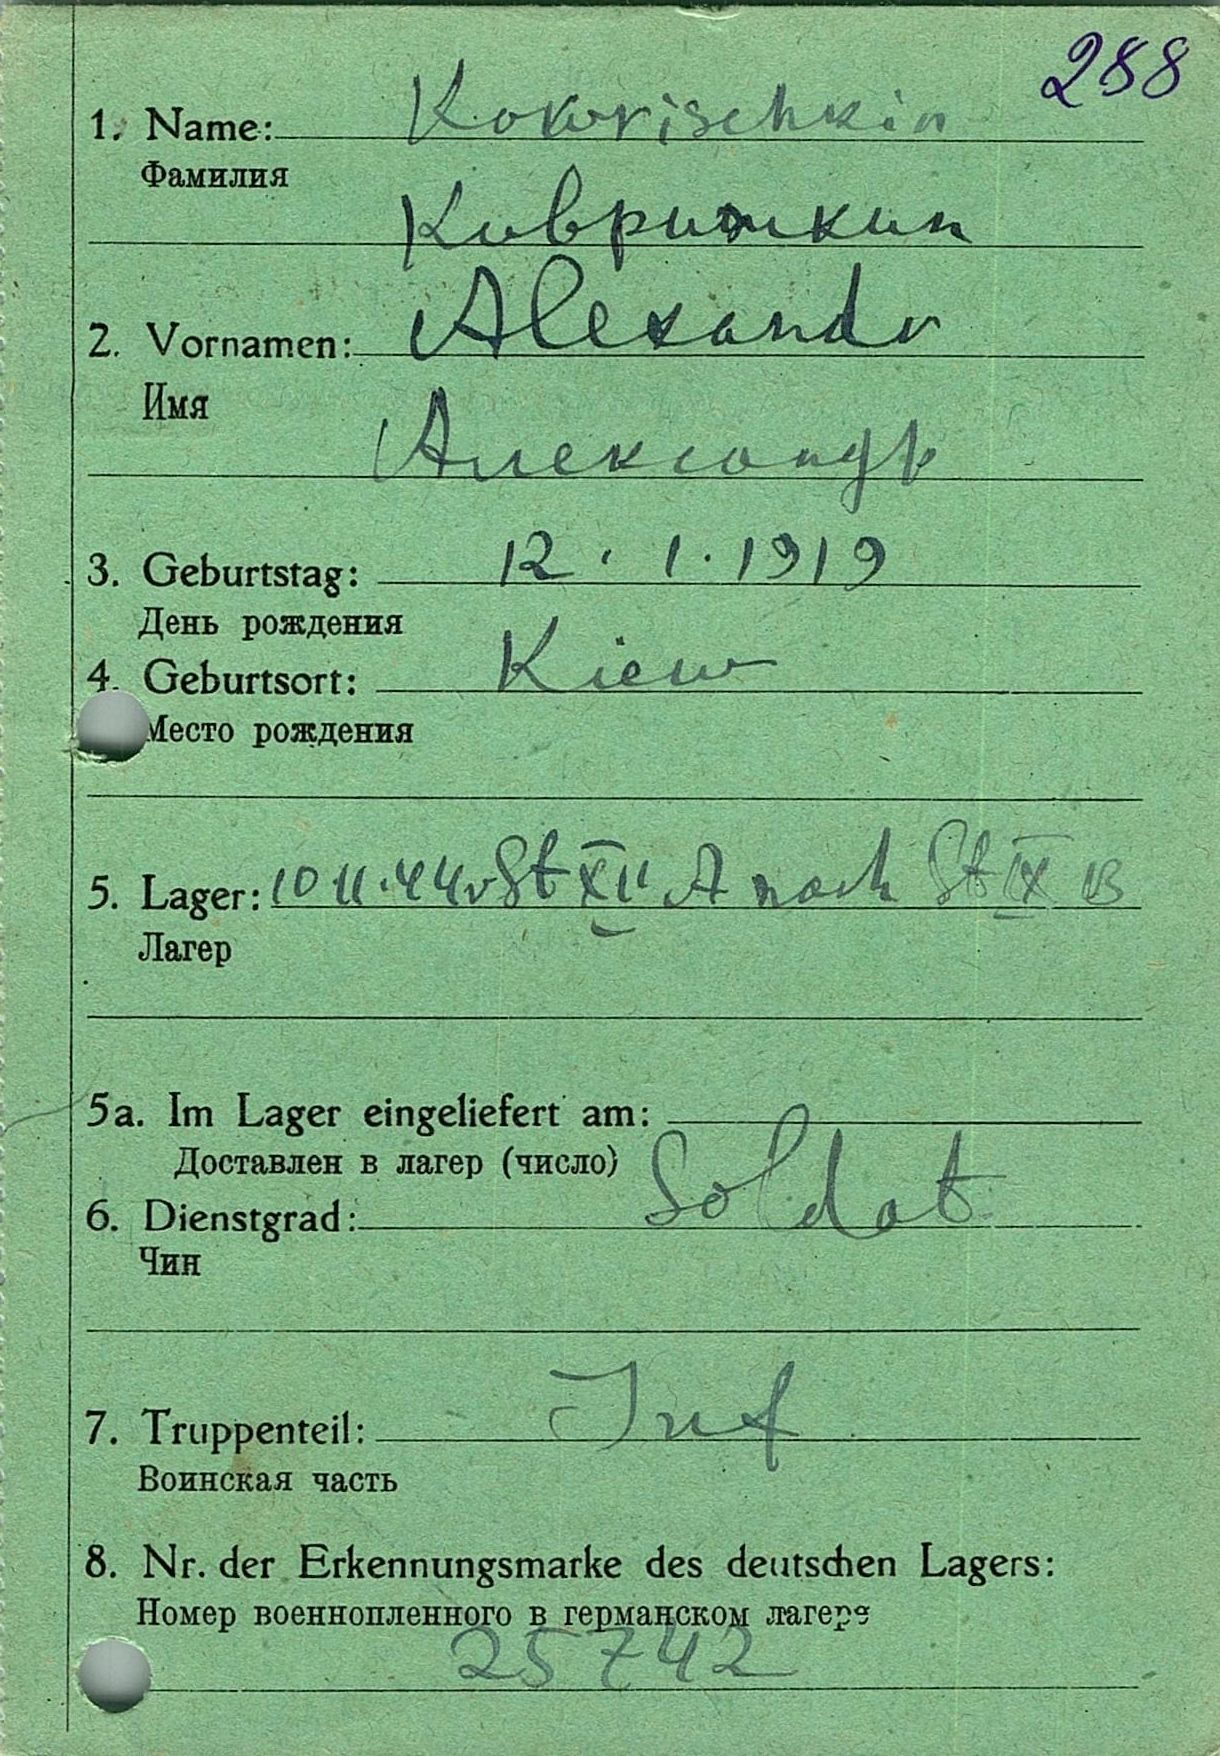 288
1. Name: Kowrischkin
Фамилия
Ковришкин
2. Vornamen: Alexandr
Имя
Александр
3. Geburtstag: 12. 1. 1919
День рождения
4. Geburtsort: Kiew
Место рождения
5. Lager: 10 11. 44 v St XII A nach St IX B
Лагер
5a. Im Lager eingeliefert am:
Доставлен в лагер (число)
6. Dienstgrad: Soldat
Чин
7. Truppenteil: Inf
Воинская часть
8. Nr. der Erkennungsmarke des deutschen Lagers:
Номер военнопленного в германском лагере
25742